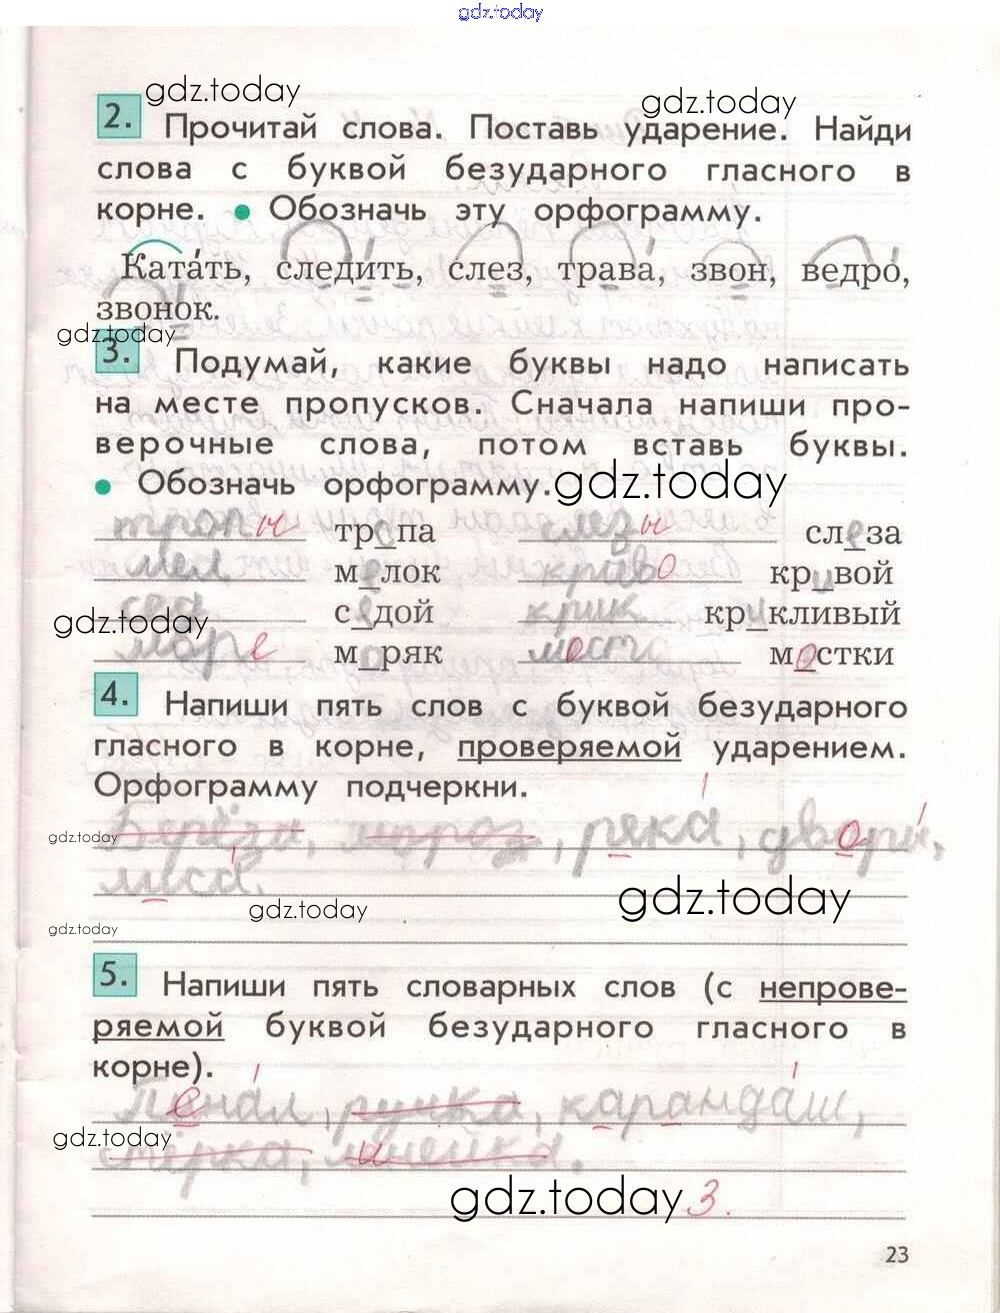 gdz.today
gdz.today
gdz.today
2. Прочитай слова. Поставь ударение. Найди
слова с буквой безударного гласного в
корне. • Обозначь эту орфограмму.
Ката́ть, следи́ть, слез, трава́, звон, ведро́,
звонок.
gdz.today
3. Подумай, какие буквы надо написать
на месте пропусков. Сначала напиши про-
верочные слова, потом вставь буквы.
• Обозначь орфограмму.
gdz.today
тропы тропа слезы слеза
мел мелок криво кривой
сед седой крик крикливый
gdz.today
море моряк мост мостки
4. Напиши пять слов с буквой безударного
гласного в корне, проверяемой ударением.
Орфограмму подчеркни.
Берёза, мороз, река́, дворы́,
gdz.today
лиса́.
gdz.today
gdz.today
gdz.today
5. Напиши пять словарных слов (с непрове-
ряемой буквой безударного гласного в
корне).
Пена́л, ручка, каранда́ш,
gdz.today
стёрка, линейка.
gdz.today
3.
23